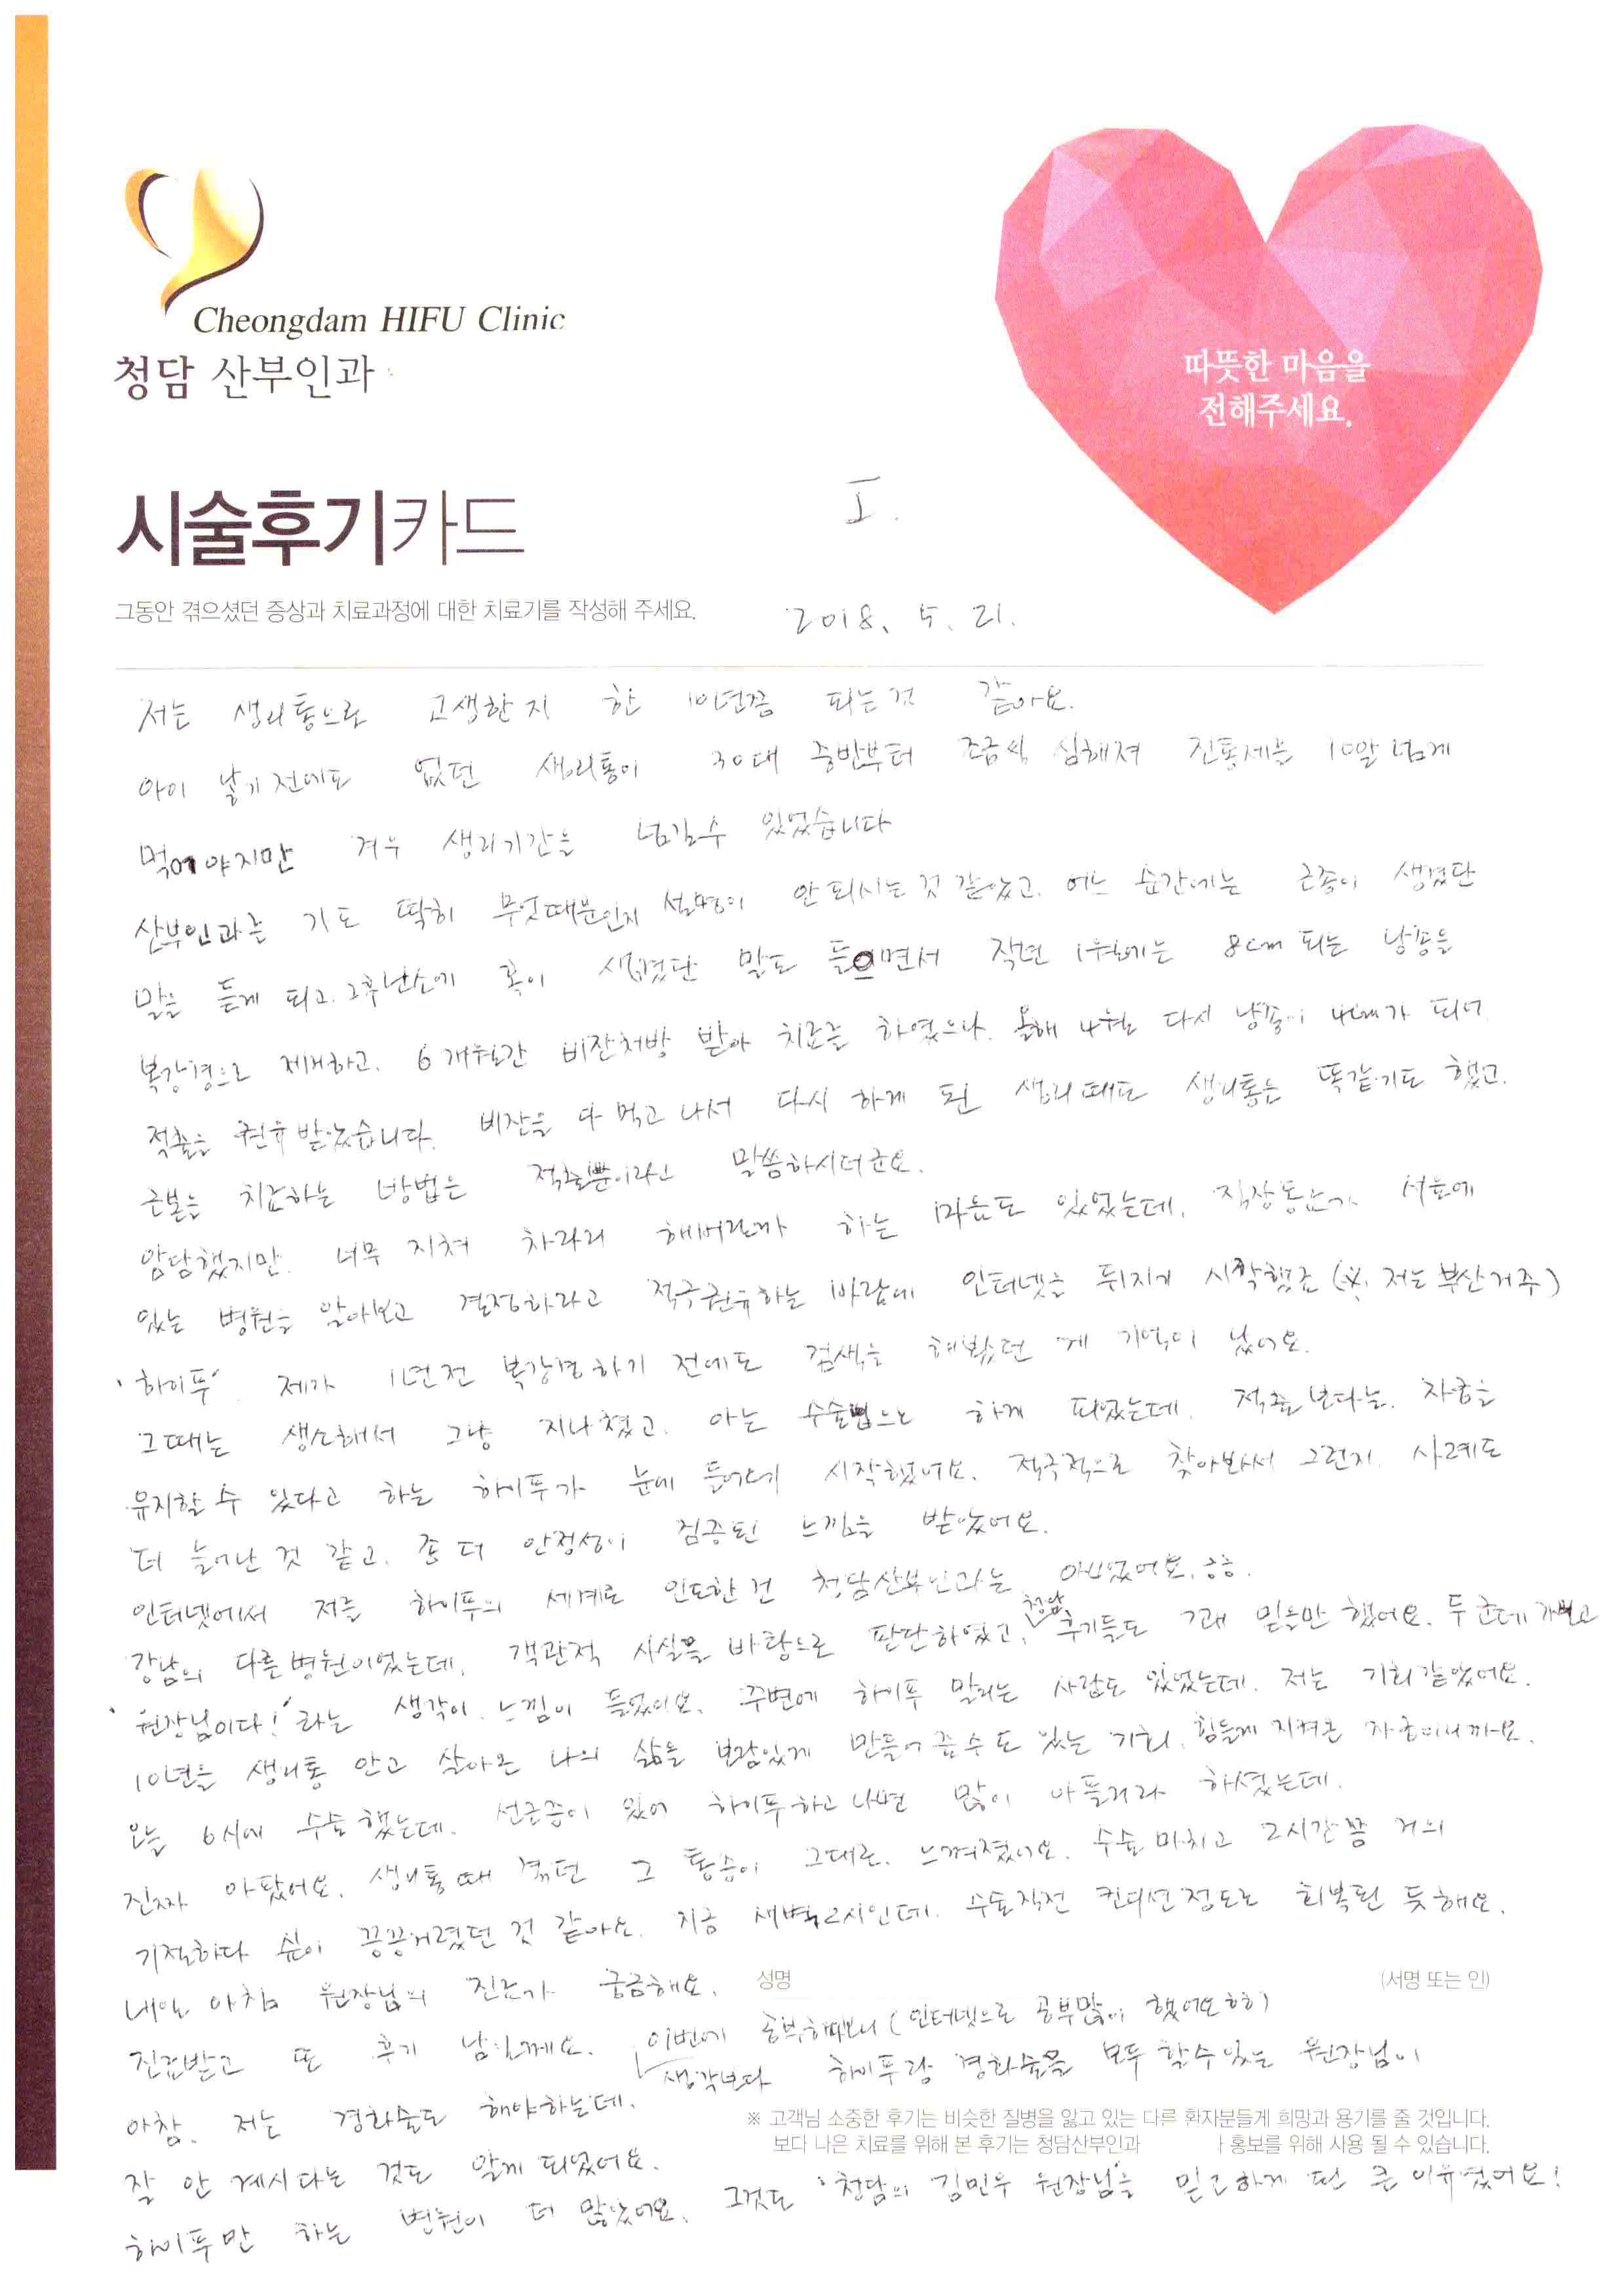 Cheongdam HIFU Clinic
청담 산부인과
따뜻한 마음을
전해주세요.
시술후기카드
I.
그동안 겪으셨던 증상과 치료과정에 대한 치료기를 작성해 주세요.
2018. 5. 21.
저는 생리통으로 고생한지 한 10년쯤 되는것 같아요.
아이 낳기 전에도 없던 생리통이 30대 중반부터 조금씩 심해져 진통제를 10알 넘게
먹어야지만 겨우 생리기간을 넘길수 있었습니다
산부인과를 가도 딱히 무엇때문인지 설명이 안 되시는 것 같았고. 어느 순간에는 근종이 생겼단
말을 듣게 되고. 그후 난소에 혹이 생겼단 말도 들으면서 작년 1월에는 8cm 되는 낭종을
복강경으로 제거하고. 6개월간 비잔처방 받아 치료를 하였으나. 올해 4월로 다시 낭종이 4cm가 되어
적출을 권유 받았습니다. 비잔을 다 먹고 나서 다시 하게 된 생리때도 생리통은 똑같기도 했고.
근본을 치료하는 방법은 적출뿐이라고 말씀하시더군요.
암담했지만. 너무 지쳐 차라리 해버릴까 하는 마음도 있었는데. 직장동료가 서울에
있는 병원을 알아보고 결정하라고 적극권유하는 바람에 인터넷을 뒤지게 시작했죠 (※. 저는 부산거주)
'하이푸'. 제가 1년전 복강경하기 전에도 검색을 해봤던 게 기억이 났어요.
그때는 생소해서 그냥 지나쳤고. 아는 수술법으로 하게 되었는데. 적출보다는. 자궁을
유지할 수 있다고 하는 하이푸가 눈에 들어오기 시작했어요. 적극적으로 찾아봐서 그런지. 사례도
더 늘어난 것 같고. 좀 더 안정성이 검증된 느낌을 받았어요.
인터넷에서 저를 하이푸의 세계로 인도한 건 청담산부인과는 아니었어요. ㅎㅎ.
강남의 다른 병원이었는데. 객관적 사실을 바탕으로 판단하였고, 청담 후기들도 꽤 믿을만 했어요. 두 군데 가보고
'원장님이다!'라는 생각이. 느낌이 들었어요. 주변에 하이푸 말리는 사람도 있었는데. 저는 기회 같았어요.
10년을 생리통 안고 살아온 나의 삶을 보람있게 만들어 줄수도 있는 기회. 힘들게 지켜온 자궁이니까요.
오늘 6시에 수술했는데. 선근증이 있어 하이푸하고 나면 많이 아플거라 하셨는데.
진짜 아팠어요. 생리통때 겪던 그 통증이 그대로. 느껴졌어요. 수술 마치고 2시간쯤 거의
기절하다 싶이 끙끙거렸던 것 같아요. 지금 새벽2시인데. 수술직전 컨디션정도로 회복된 듯해요.
내일 아침 원장님의 진료가 궁금해요.
성명
(서명 또는 인)
진료받고 또 후기 남길께요. 이번에 공부해보니 (인터넷으로 공부많이 했어요 ㅎㅎ)
아참. 저는 경화술도 해야하는데. 생각보다 하이푸랑 경화술을 모두 할수있는 원장님이
※ 고객님 소중한 후기는 비슷한 질병을 앓고 있는 다른 환자분들께 희망과 용기를 줄 것입니다.
보다 나은 치료를 위해 본 후기는 청담산부인과 홍보를 위해 사용 될 수 있습니다.
잘 안 계시다는 것도 알게 되었어요.
하이푸만 하는 병원이 더 많았어요. 그것도 '청담의 김민우 원장님'을 믿고 하게 된 큰 이유였어요!